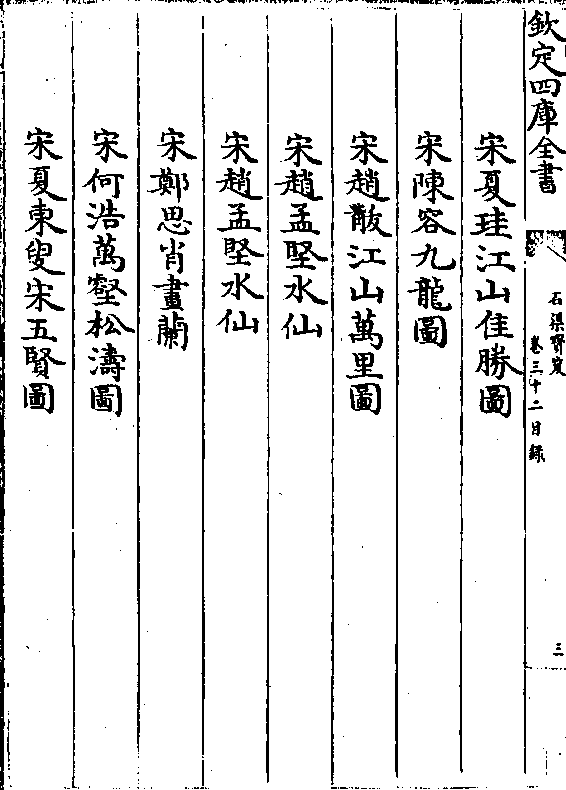 欽定四庫全書
石渠寳笈
卷三十二目録
三
宋夏珪江山佳勝圖
宋陳容九龍圖
宋趙黻江山萬里圖
宋趙孟堅水仙
宋趙孟堅水仙
宋鄭思肖畫蘭
宋何浩萬壑松濤圖
宋夏東叟宋五賢圖